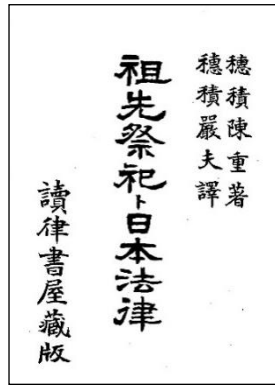 穗積陳重著
穗積嚴夫譯
祖先祭祀ト日本法律
讀律書屋藏版